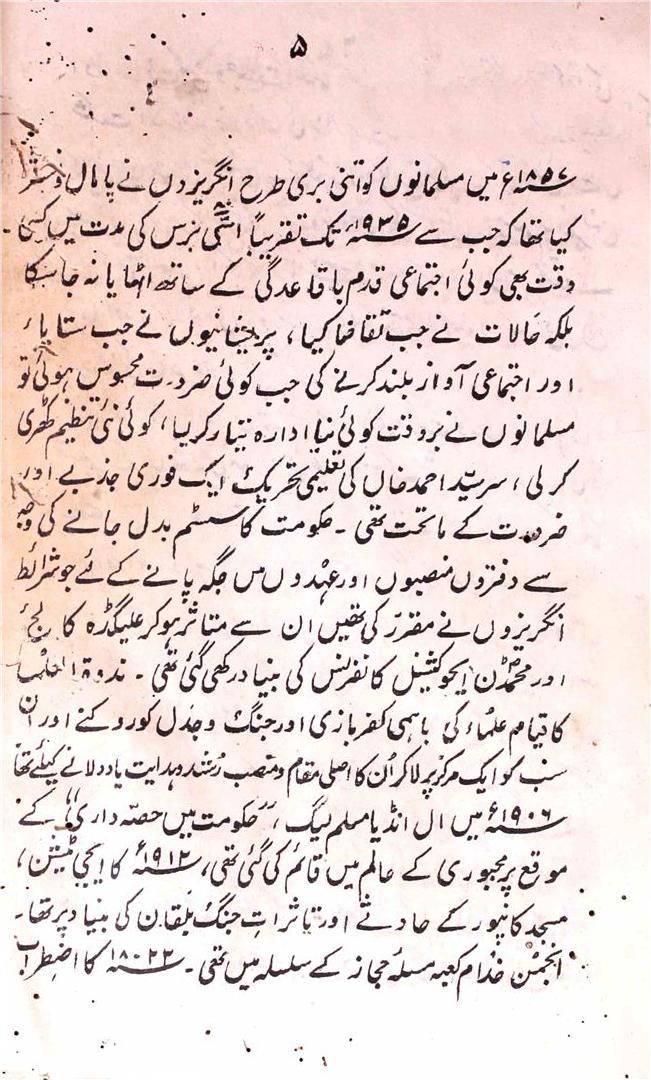 ۵
۱۸۵۷ء میں مسلمانوں کو اتنی بری طرح انگریزوں نے پامال و منتشر
کیا تھا کہ جب سے ۱۹۳۵ء تک تقریباً اسّی برس کی مدت میں کسی
وقت بھی کوئی اجتماعی قدم باقاعدگی کے ساتھ اٹھایا نہ جا سکا
بلکہ حالات نے جب تقاضا کیا، پریشانیوں نے جب ستایا،
اور اجتماعی آواز بلند کرنے کی جب کوئی ضرورت محسوس ہوئی تو
مسلمانوں نے بروقت کوئی نیا ادارہ تیار کر لیا، کوئی نئی تنظیم کھڑی
کر لی، سرسیّد احمد خاں کی تعلیمی تحریک ایک فوری جذبے اور
ضرورت کے ماتحت تھی۔ حکومت کا سسٹم بدل جانے کی وجہ
سے دفتروں منصبوں اور عہدوں میں جگہ پانے کے لئے جو شرائط
انگریزوں نے مقرر کی تھیں ان سے متاثر ہو کر علیگڑھ کالج
اور محمڈن ایجوکیشنل کانفرنس کی بنیاد رکھی گئی تھی۔ ندوۃ العلماء
کا قیام علماء کی باہمی کفر بازی اور جنگ و جدل کو روکنے اور ان
سب کو ایک مرکز پر لا کر اُن کا اصلی مقام و منصب رشد و ہدایت یاد دلانے کیلئے تھا
۱۹۰۶ء میں ال انڈیا مسلم لیگ، "حکومت میں حصّہ داری" کے
موقع پر مجبوری کے عالم میں قائم کی گئی تھی، ۱۹۱۲ء کا ایجی ٹیشن،
مسجد کانپور کے حادثے اور تاثراتِ جنگ بلقان کی بنیاد پر تھا۔
انجمن خدام کعبہ مسلۂ حجاز کے سلسلہ میں تھی۔ کا اضطراب